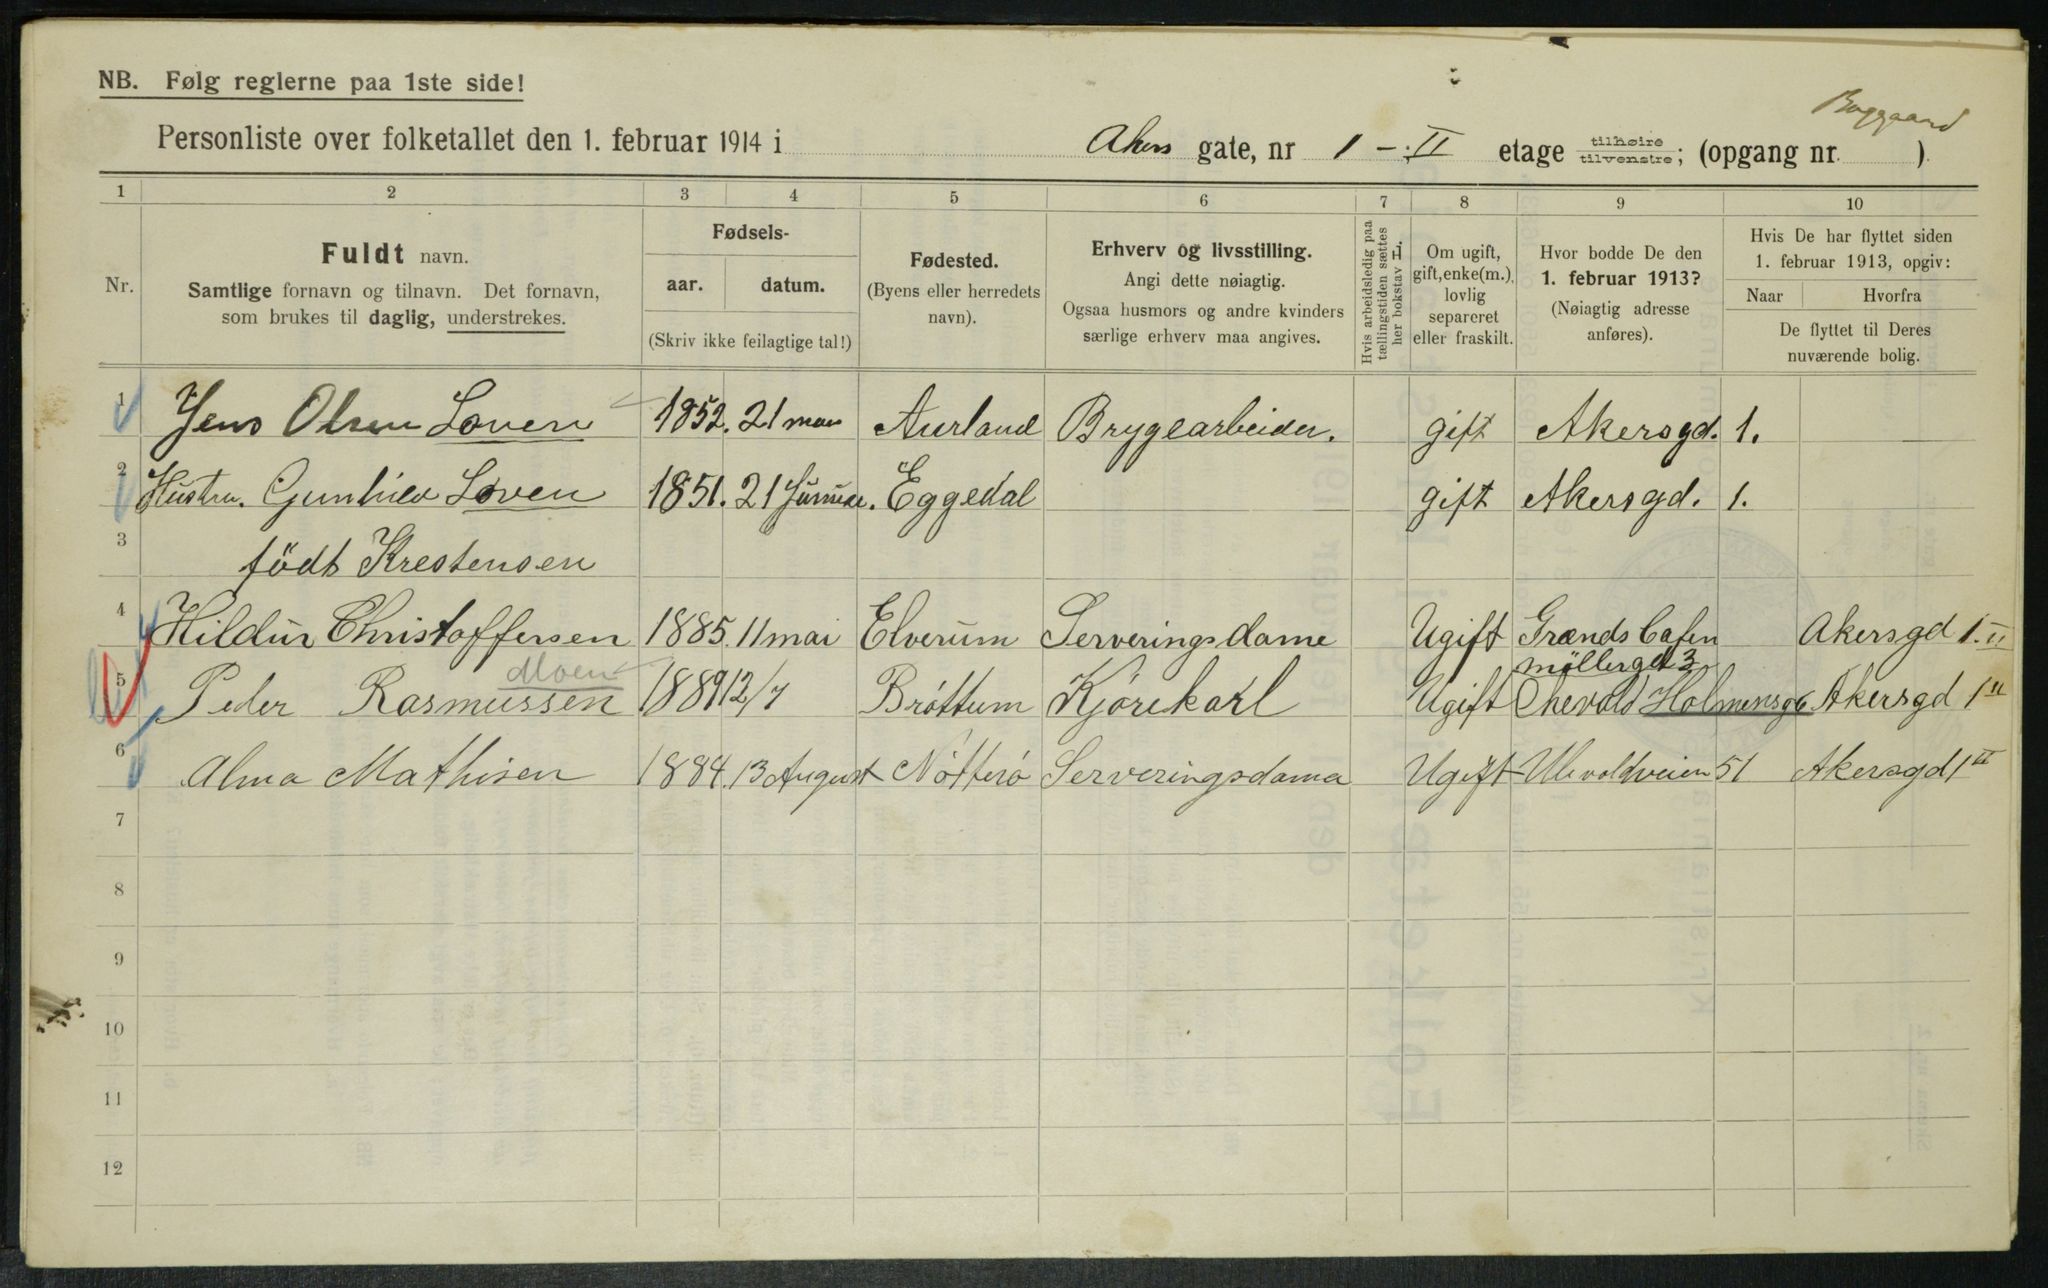 NB. Følg reglerne paa 1ste side!
Baggaard
Personliste over folketallet den 1. februar 1914 i Akers gate, nr 1 - II etage tilhøire tilvenstre; (opgang nr. )
1 2 3 4 5 6 7 8 9 10
Nr.
Fuldt navn.
Samtlige fornavn og tilnavn. Det fornavn,
som brukes til daglig, understrekes.
Fødsels-
aar. datum.
(Skriv ikke feilagtige tal!)
Fødested.
(Byens eller herredets
navn).
Erhverv og livsstilling.
Angi dette nøiagtig.
Ogsaa husmors og andre kvinders
særlige erhverv maa angives.
Hvis arbeidsledig paa
tællingstiden sættes
her bokstav L.
Om ugift,
gift, enke(m.),
lovlig
separeret
eller fraskilt.
Hvor bodde De den
1. februar 1913?
(Nøiagtig adresse
anføres).
Hvis De har flyttet siden
1. februar 1913, opgiv:
Naar Hvorfra
De flyttet til Deres
nuværende bolig.
1 Jens Olsen Loven 1852. 21 mar Aurland Brygearbeider. gift Akersgd. 1.
2 Hustru. Gunhild Loven 1851. 21 Eggedal gift Akersgd. 1.
3 födt Krestensen
4 Hildur Christoffersen 1885. 11 mai Elverum Serveringsdame Ugift Grænds Cafen Akersgd 1. II
Moen möllergd 3
5 Peder Rasmussen 1889 12/7 Bröttum Kjörekarl Ugift Holmensg 6 Akersgd 1 II
6 Alma Mathisen 1884. 13 August Nötterö Serveringsdama Ugift Ulevoldveien 51 Akersgd 1 II
7
8
9
10
11
12